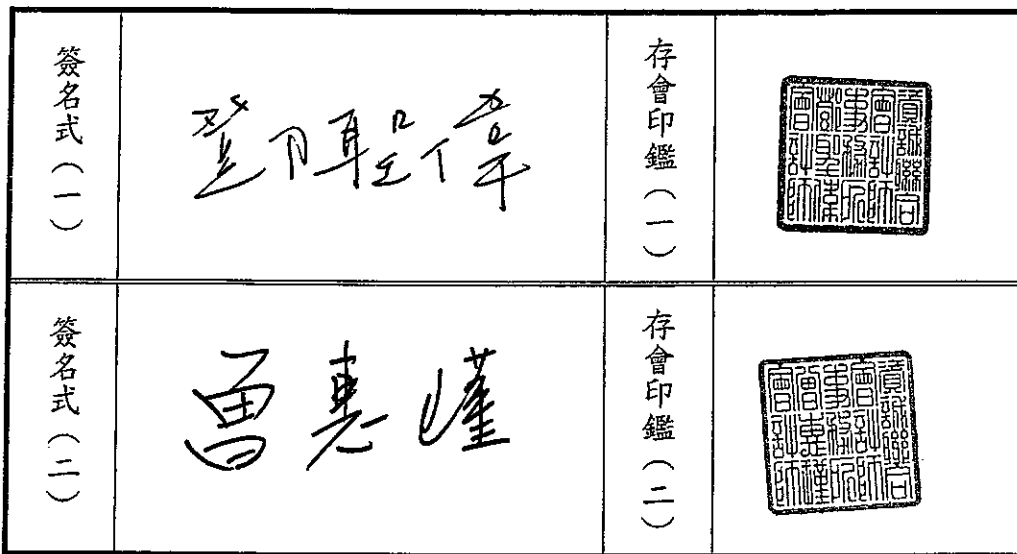 簽名式（一）
鄧聖偉
存會印鑑（一）
資誠聯合
會計師
事務所
鄧聖偉
會計師
簽名式（二）
曾惠瑾
存會印鑑（二）
資誠聯合
會計師
事務所
曾惠瑾
會計師